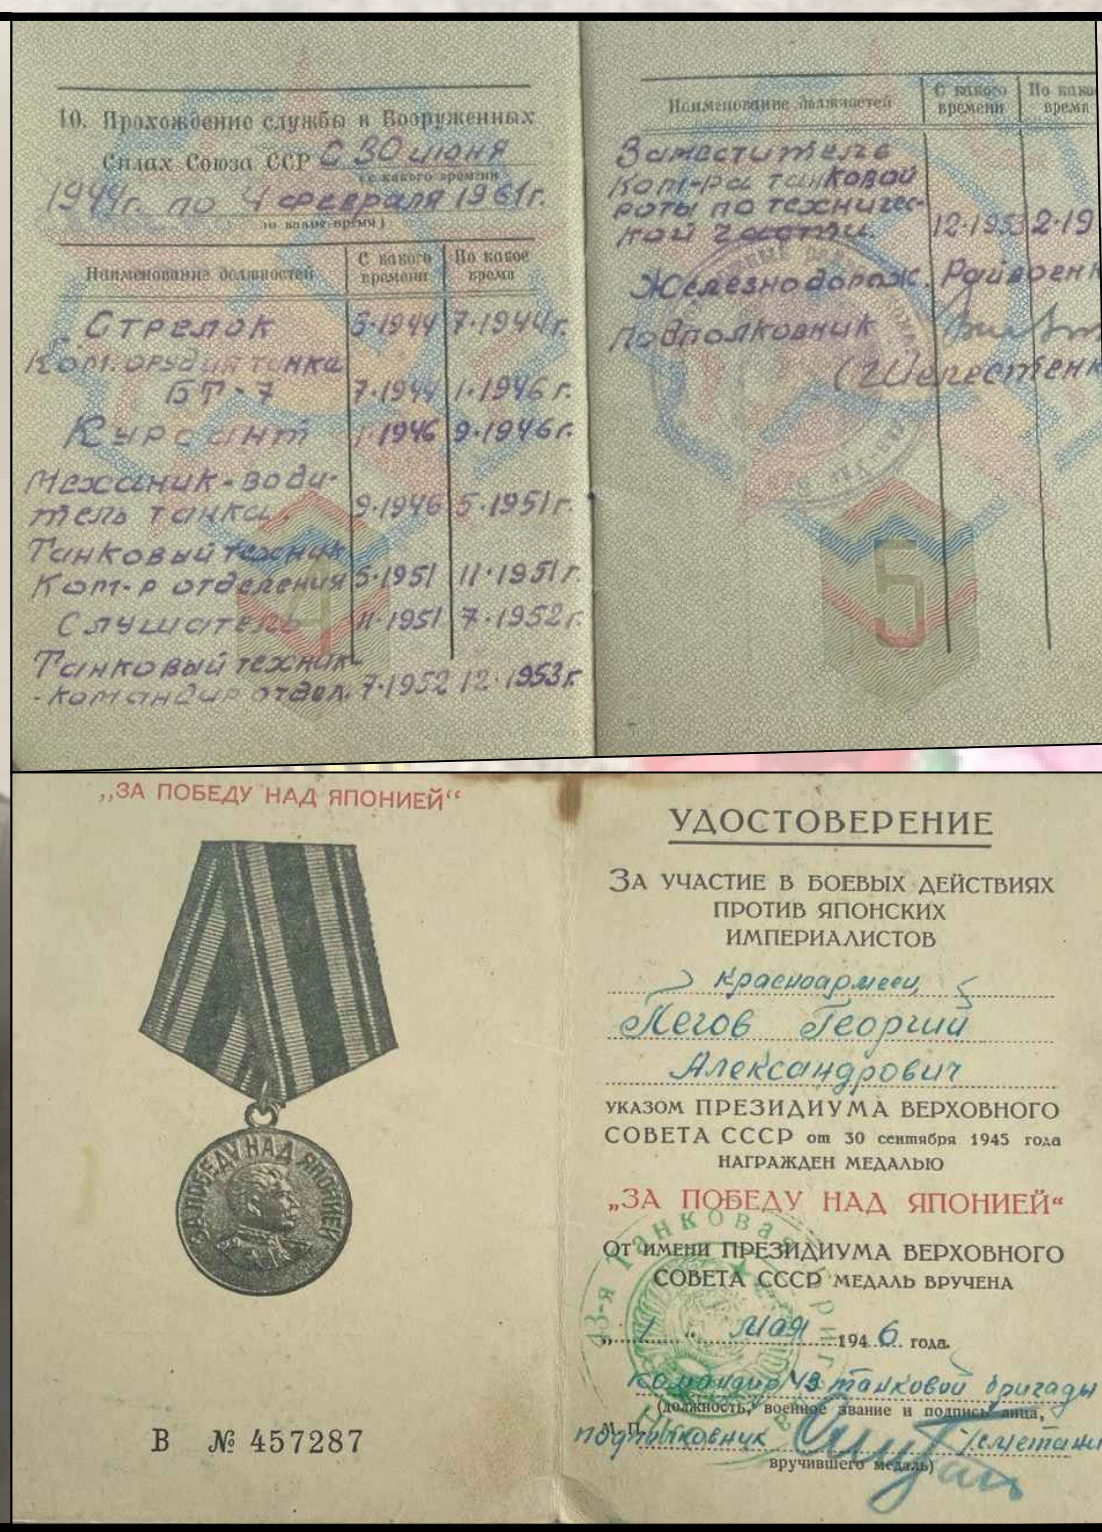 10. Прохождение службы в Вооруженных
Силах Союза ССР С 30 июня
(с какого времени
1944г. по 4 февраля 1961г.
по какое время)
Наименование должностей
С какого времени
По какое время
Стрелок 5-1944 7-1944г.
Ком. орудия танка
БТ-7 7-1944 1-1946г.
Курсант 1-1946 9-1946г.
Механик-води-
тель танка. 9-1946 5-1951г.
Танковый техник
Ком-р отделения 5-1951 11-1951г.
Слушатель 11-1951 7-1952г.
Танковый техник-
-командир отдел. 7-1952 12-1953г.
4
Наименование должностей
С какого времени
По како
время
Заместитель
Ком-ра танковой
роты по техничес-
кой части. 12-1953 2-19
Железнодорож. Райвоенк
подполковник
(Шерестенк
5
„ЗА ПОБЕДУ НАД ЯПОНИЕЙ“
ЗА ПОБЕДУ НАД ЯПОНИЕЙ
В № 457287
УДОСТОВЕРЕНИЕ
ЗА УЧАСТИЕ В БОЕВЫХ ДЕЙСТВИЯХ
ПРОТИВ ЯПОНСКИХ
ИМПЕРИАЛИСТОВ
красноармеец
Легов Георгий
Александрович
УКАЗОМ ПРЕЗИДИУМА ВЕРХОВНОГО
СОВЕТА СССР от 30 сентября 1945 года
НАГРАЖДЕН МЕДАЛЬЮ
„ЗА ПОБЕДУ НАД ЯПОНИЕЙ“
ОТ ИМЕНИ ПРЕЗИДИУМА ВЕРХОВНОГО
СОВЕТА СССР МЕДАЛЬ ВРУЧЕНА
„ 1 “ мая 1946 года.
командир 43 танковой бригады
(должность, военное звание и подпись лица,
М. П.
подполковник
вручившего медаль)
43-я Танковая бригада